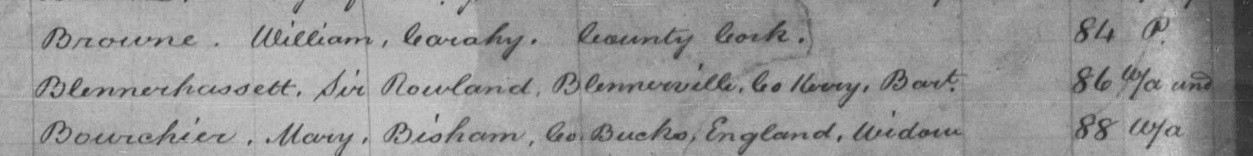 Browne. William, Carahy. County Cork. 84 P.
Blennerhassett. Sir Rowland, Blennerville. Co Kerry, Bart. 86 W/a und
Bourchier. Mary. Bisham, Co. Bucks, England. Widow 88 W/a